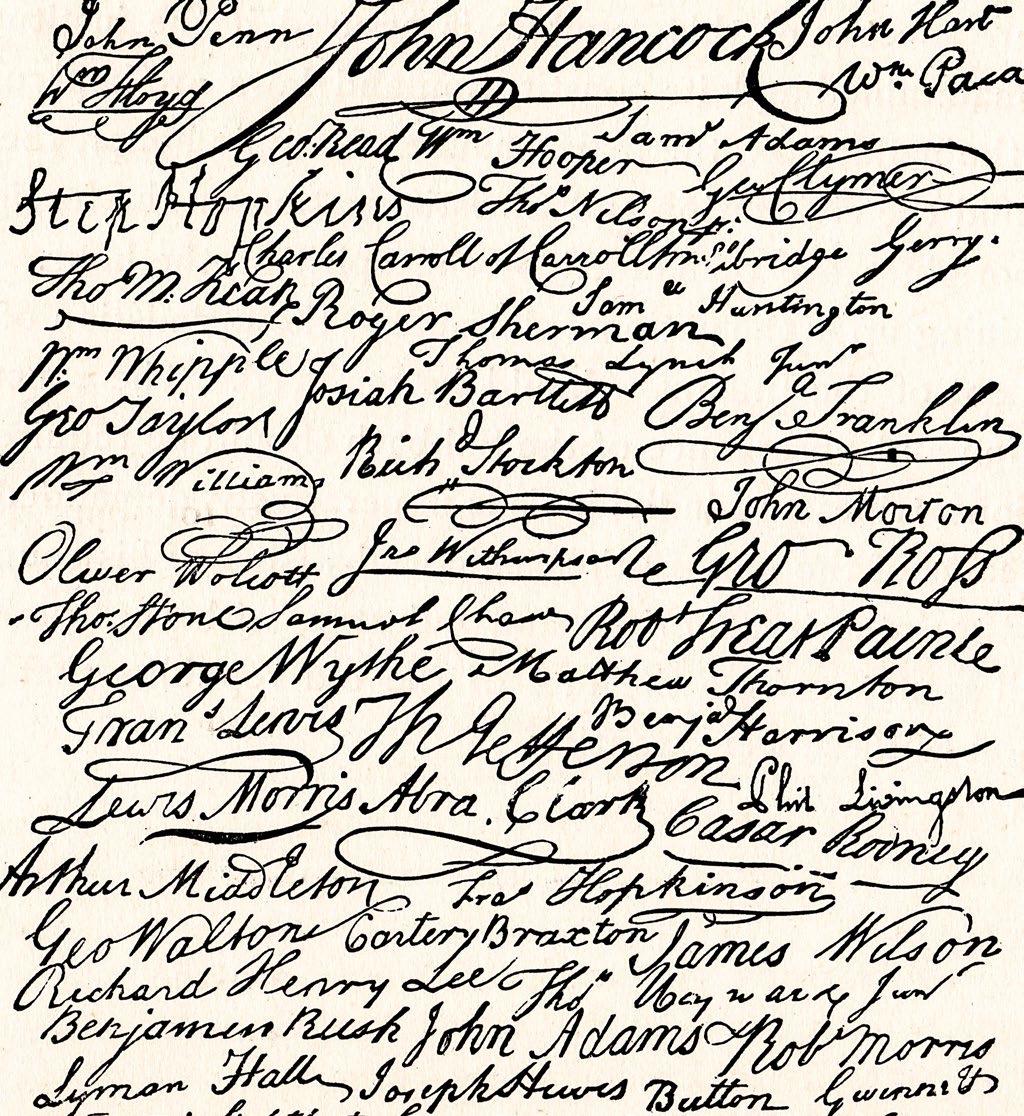 John Penn John Hancock John Hart
Wm Floyd Wm. Paca
Geo. Read Wm Hooper Saml Adams
Step Hopkins Thos Nelson jr. Geo Clymer
Charles Carroll of Carroll bridge Gerry.
Tho M. Kean Roger Sherman Sam el Huntington
Wm Whipple Thomas Lynch Junr
Josiah Bartlett Benj a Franklin
Geo Taylor
Wm Williams Rich d Stockton
John Morton
Oliver Wolcott Jno Witherspoon Geo Ross
Thos. Stone Samuel Chase Robt Treat Paine
George Wythe Matthew Thornton
Fran s Lewis Th Jefferson Benja Harrison
Lewis Morris Abra. Clark Phil Livingston
Casar Rodney
Arthur Middleton Fras Hopkinson
Geo Walton Carter Braxton James Wilson
Richard Henry Lee Thos Heyward Junr
Benjamin Rush John Adams Robt Morris
Lyman Hall Joseph Hewes Button Gwinnett